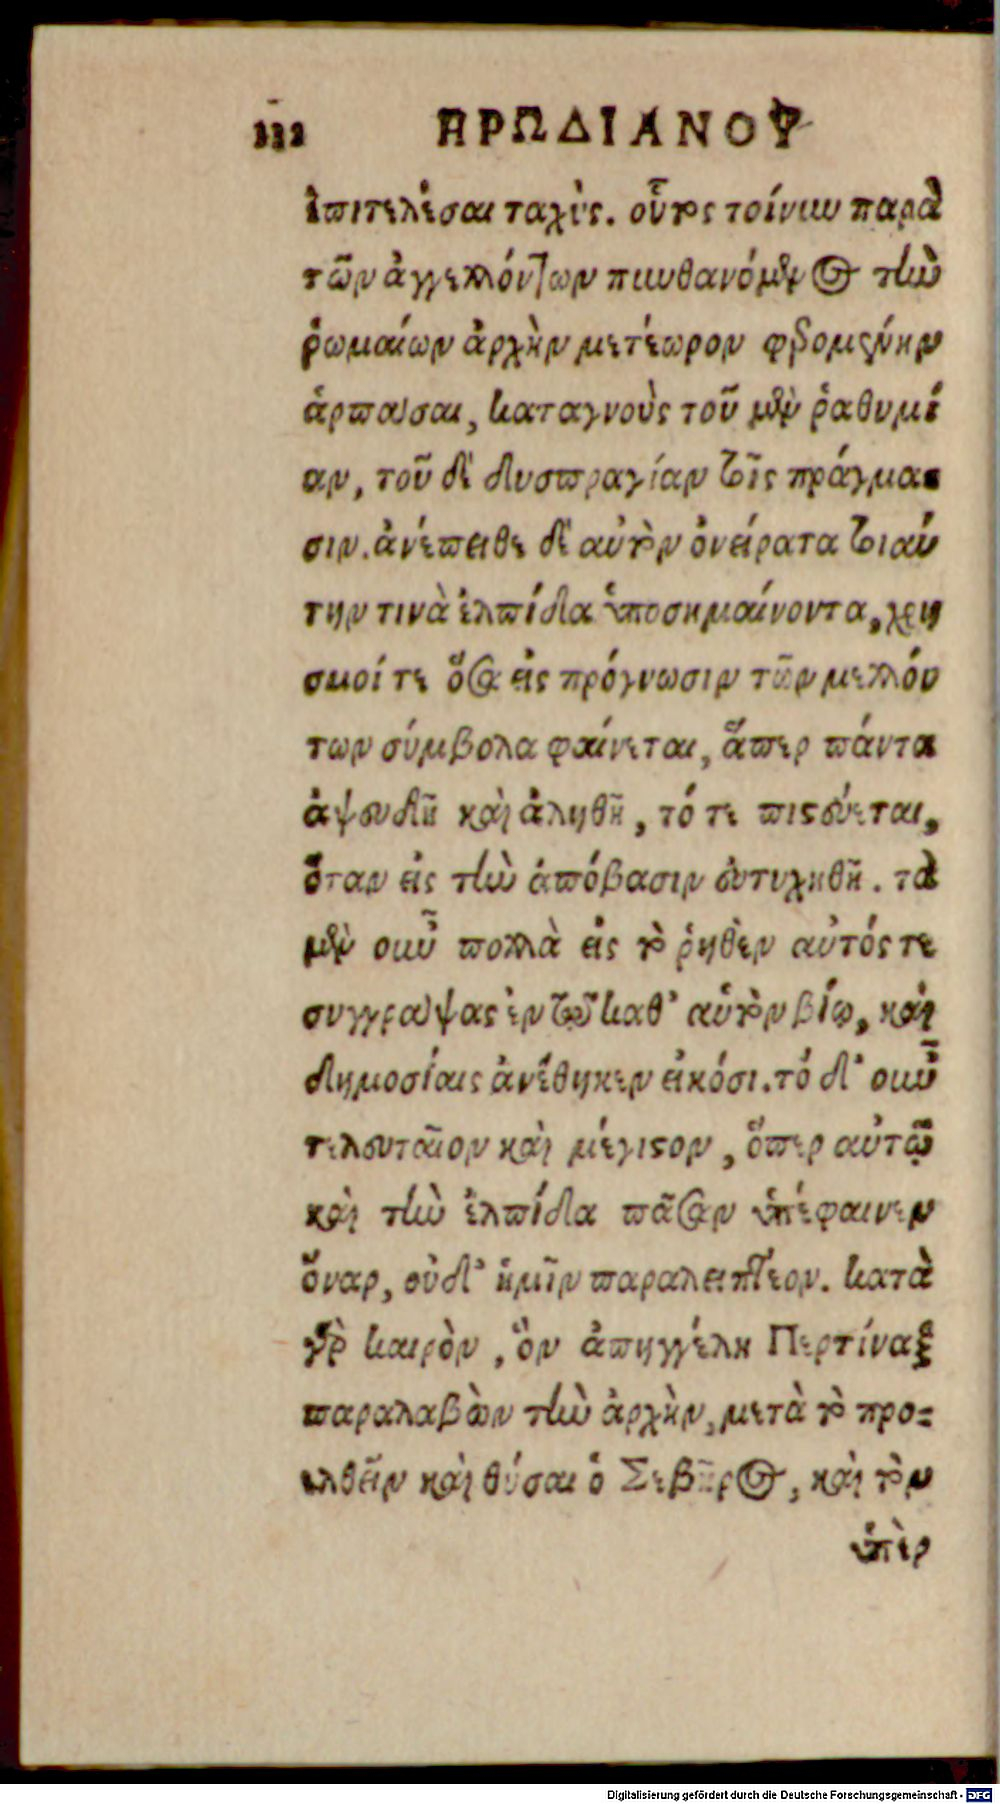 ΗΡΩΔΙΑΝΟΥ
ἐπιτελέσαι ταχύς. οὗτος τοίνυν παρὰ
τῶν ἀγγελλόντων πυνθανόμενος τὴν
ῥωμαίων ἀρχὴν μετέωρον φερομένην
ἁρπάσαι, καταγνοὺς τοῦ μὲν ῥαθυμί
αν, τοῦ δὲ δυσπραγίαν τοῖς πράγμα-
σιν. ἀνέπειθε δὲ αὐτὸν ὀνείρατα τοιαύ
την τινὰ ἐλπίδα ὑποσημαίνοντα, χρη
σμοί τε ὅσα εἰς πρόγνωσιν τῶν μελλόν
των σύμβολα φαίνεται, ἅπερ πάντα
ἀψευδῆ καὶ ἀληθῆ, τό τε πιστεύεται,
ὅταν εἰς τὴν ἀπόβασιν εὐτυχηθῆ. τὰ
μὲν οὖν πολλὰ εἰς τὸ ῥηθὲν αὐτός τε
συγγράψας ἐν τῷ καθ' αὑτὸν βίῳ, καὶ
δημοσίαις ἀνέθηκεν εἰκόσι. τό δ' οὖν
τελευταῖον καὶ μέγιστον, ὅπερ αὐτῷ
καὶ τὴν ἐλπίδα πᾶσαν ὑπέφαινεν
ὄναρ, οὐδ' ἡμῖν παραλειπτέον. κατὰ
γὰρ καιρὸν, ὃν ἀπηγγέλη Περτίναξ
παραλαβὼν τὴν ἀρχὴν, μετὰ τὸ προ-
ελθεῖν καὶ θύσαι ὁ Σεβῆρος, καὶ τὸν
ὑπὲρ
Digitalisierung gefördert durch die Deutsche Forschungsgemeinschaft - DFG